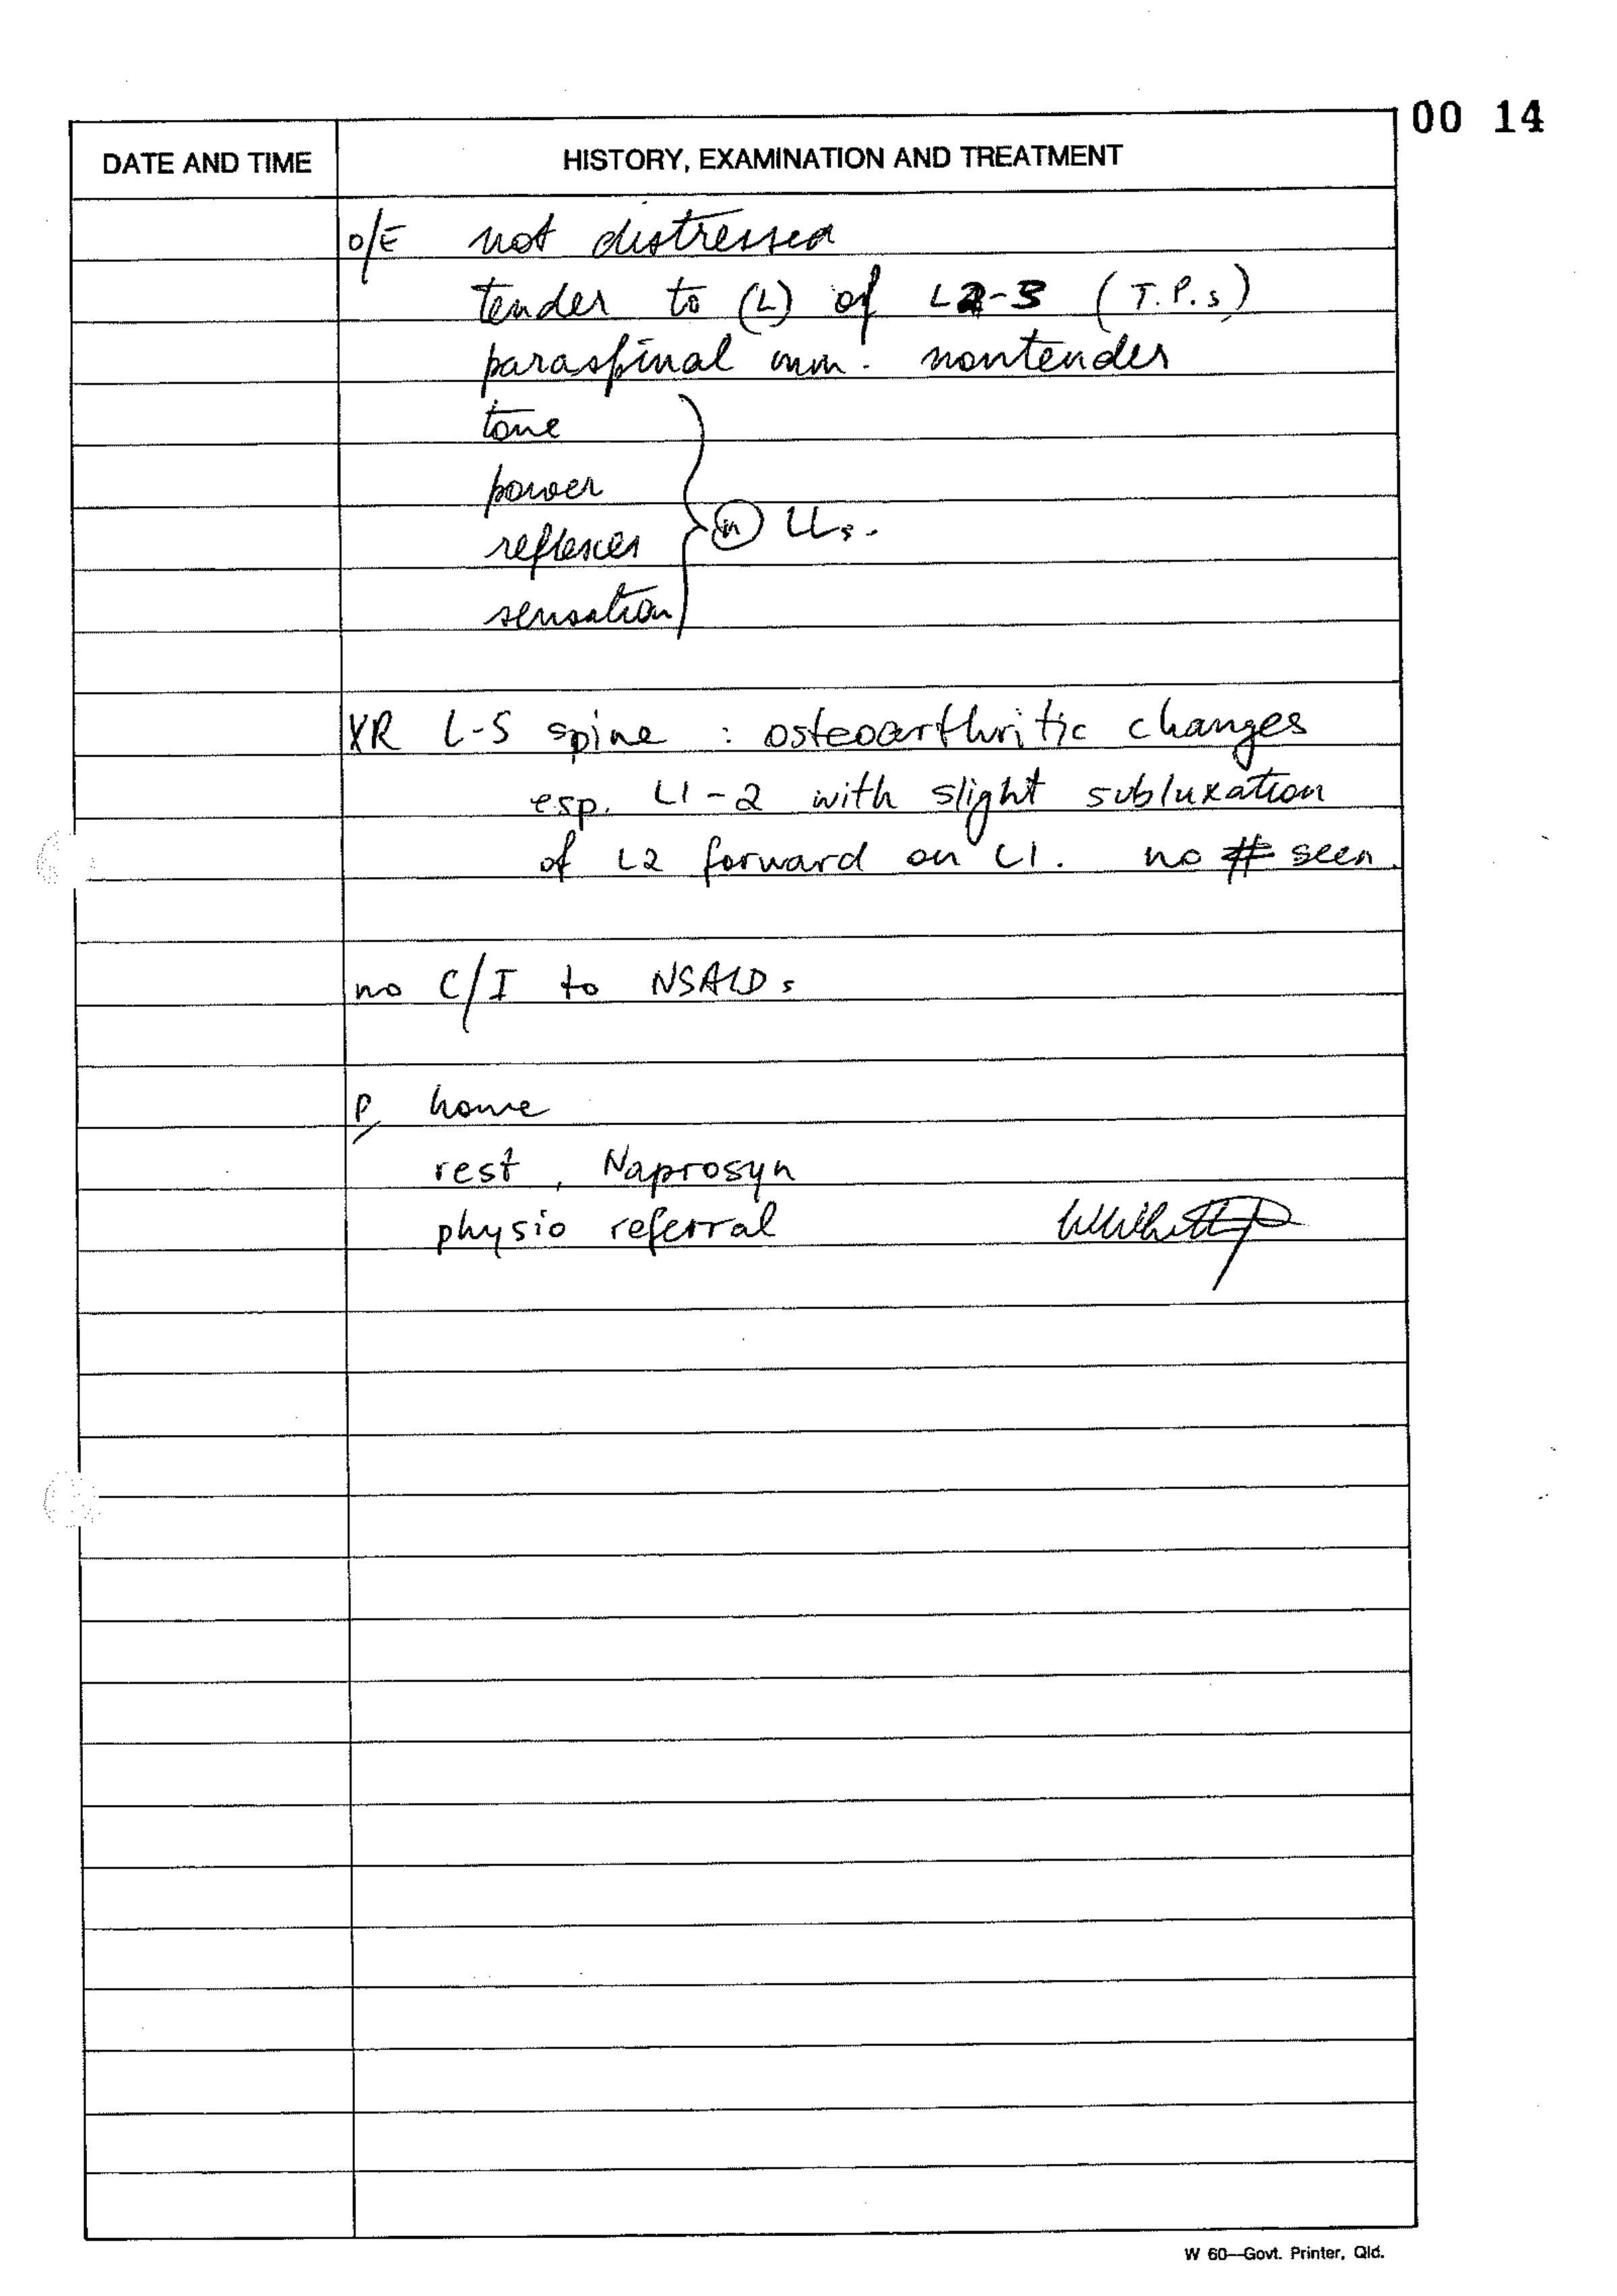 00 14
DATE AND TIME HISTORY, EXAMINATION AND TREATMENT
O/E not distressed
tender to (L) of L2-3 (T.P.s)
paraspinal mm. nontender
tone
power
(n) LLs.
reflexes
sensation
XR L-S spine : osteoarthritic changes
esp. L1-2 with slight subluxation
of L2 forward on L1. no # seen.
no C/I to NSAIDs
P/ home
rest, Naprosyn
physio referral
W 60—Govt. Printer, Qld.